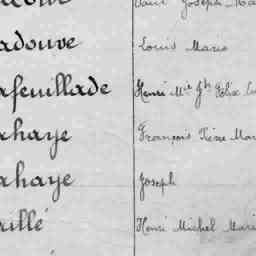 Joseph
adouve Louis Marie
afeuillade Henri Mie Jh Félix
ahaye François Pierre Mar
ahaye Joseph
aillé Henri Michel Mari